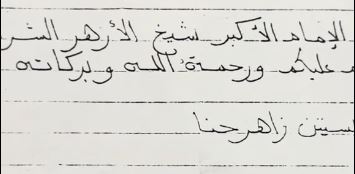 الإمام الأكبر شيخ الأزهر الشر
م عليكم ورحمة الله وبركاته
زاهر حنا